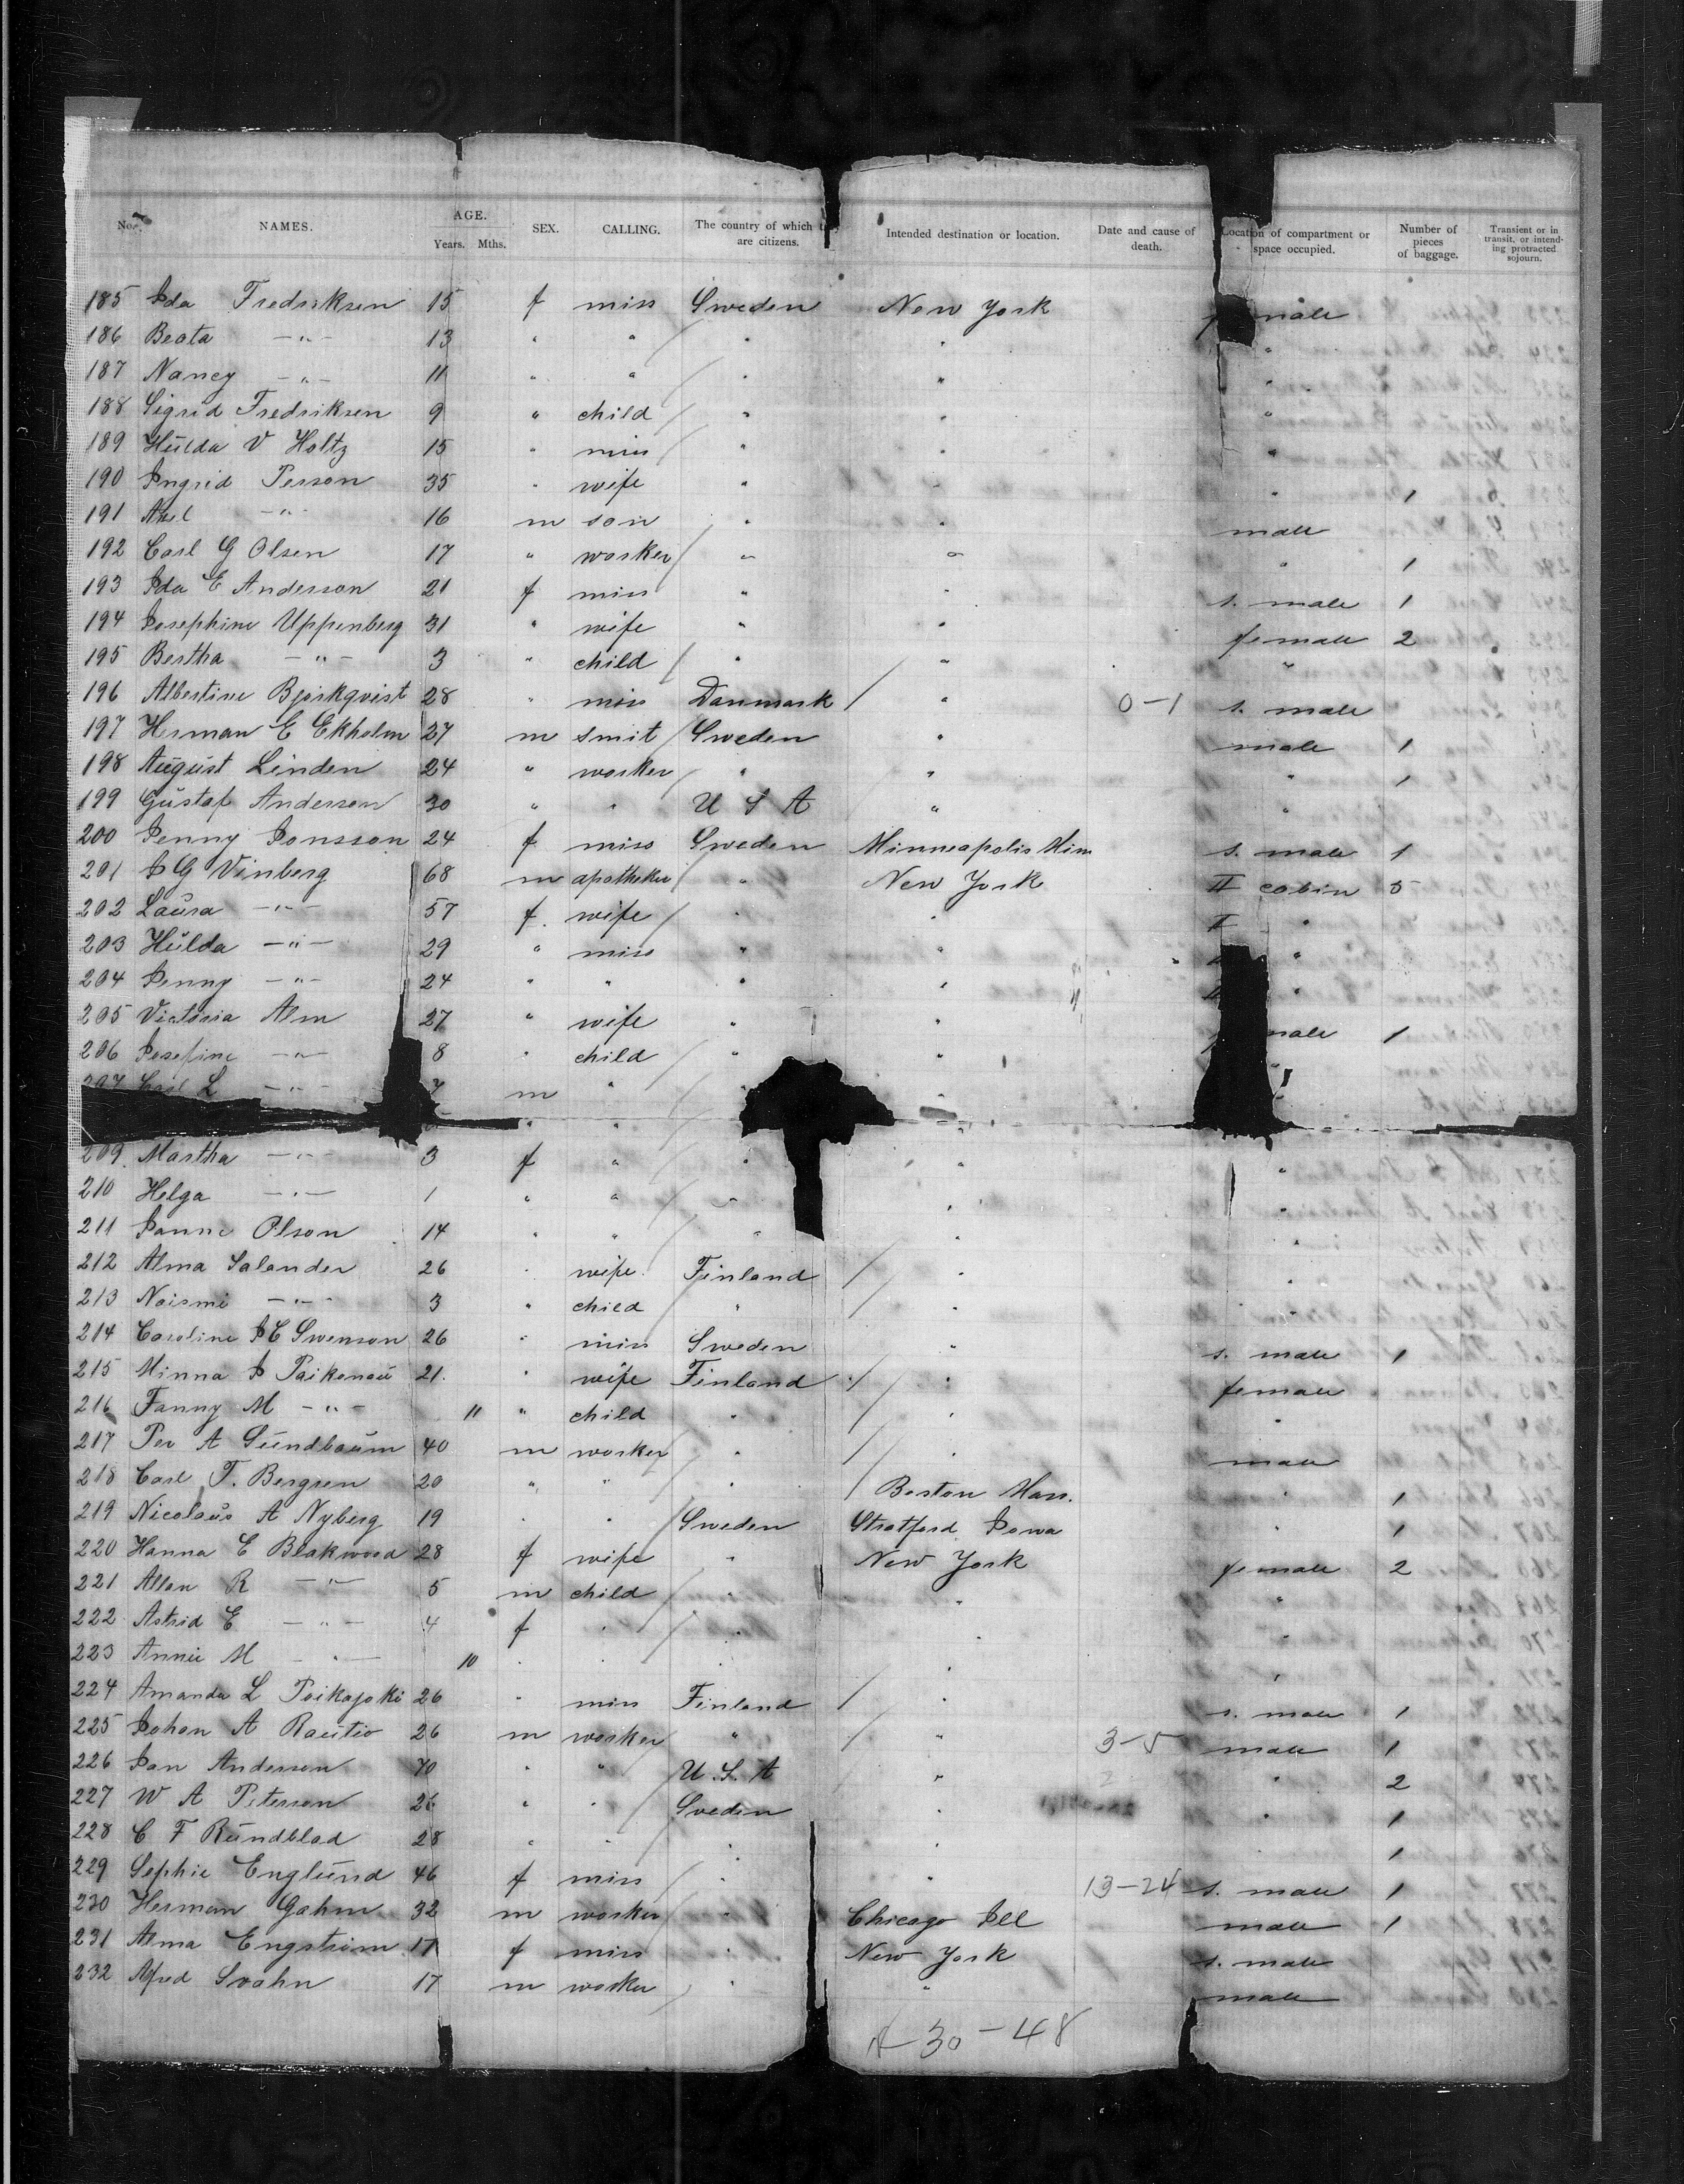 No. NAMES. AGE. Years. Mths. SEX. CALLING. The country of which they are citizens. Intended destination or location. Date and cause of death. Location of compartment or space occupied. Number of pieces of baggage. Transient or in transit, or intending protracted sojourn.
185 Ida Fredriksen 15 f miss Sweden New York male
186 Beata —"— 13 " " " " "
187 Nancy —"— 11 " " " " "
188 Sigrid Fredriksen 9 " child " " "
189 Hulda V Holtz 15 " miss " " "
190 Ingrid Person 35 " wife " " " 1
191 Axel —"— 16 m son " " male
192 Carl G Olsen 17 " worker " " " 1
193 Ida E Anderson 21 f miss " " s. male 1
194 Josephine Uppenberg 31 " wife " " female 2
195 Bertha —"— 3 " child " " "
196 Albertine Bjørkqvist 28 " miss Danmark " 0-1 s. male
197 Herman E Ekholm 27 m smit Sweden " male 1
198 August Linden 24 " worker " " " 1
199 Gustaf Anderson 30 " " U S A " "
200 Jenny Jonsson 24 f miss Sweden Minneapolis Min s. male 1
201 J G Vinberg 68 m apotheker " New York II cabin 5
202 Laura —"— 57 f. wife " " II "
203 Hulda —"— 29 " miss " " "
204 Jenny —"— 24 " " " " "
205 Victoria Alm 27 " wife " " male 1
206 Josefine —"— 8 " child " " "
207 Carl L —"— 7 m " " "
" "
209. Martha —"— 3 f " " " "
210 Helga —"— 1 " " " " "
211 Janne Olson 14 " " " " "
212 Alma Salander 26 " wife Finland " "
213 Noismi —"— 3 " child " " "
214 Caroline J C Swenson 26 " miss Sweden " s. male 1
215 Minna J Paikonau 21. " wife Finland " female
216 Fanny M —"— 11 " child " " "
217 Per A Sundbaum 40 m worker " " male
218 Carl F. Bergren 20 " " " Boston Mass. " 1
219 Nicolaus A Nyberg 19 " " Sweden Stratford Iowa " 1
220 Hanna E Blakwood 28 f wife " New York female 2
221 Allan R —"— 5 m child " " "
222 Astrid E —"— 4 f " " " "
223 Annie M —"— 10 " " " " "
224 Amanda L Poikajoki 26 " miss Finland " s. male 1
225 Johan A Rautio 26 m worker " " 3-5 male 1
226 Jan Anderson 70 " " U. S. A " " 2
227 W A Peterson 26 " " Sweden " " 1
228 C F Rundblad 28 " " " " " 1
229 Sophie Englund 46 f miss " " 13-24 s. male 1
230 Herman Gahm 32 m worker " Chicago Ill male 1
231 Alma Engstrøm 17 f miss " New York s. male
232 Alfred Svahn 17 m worker " " male
A-30-48